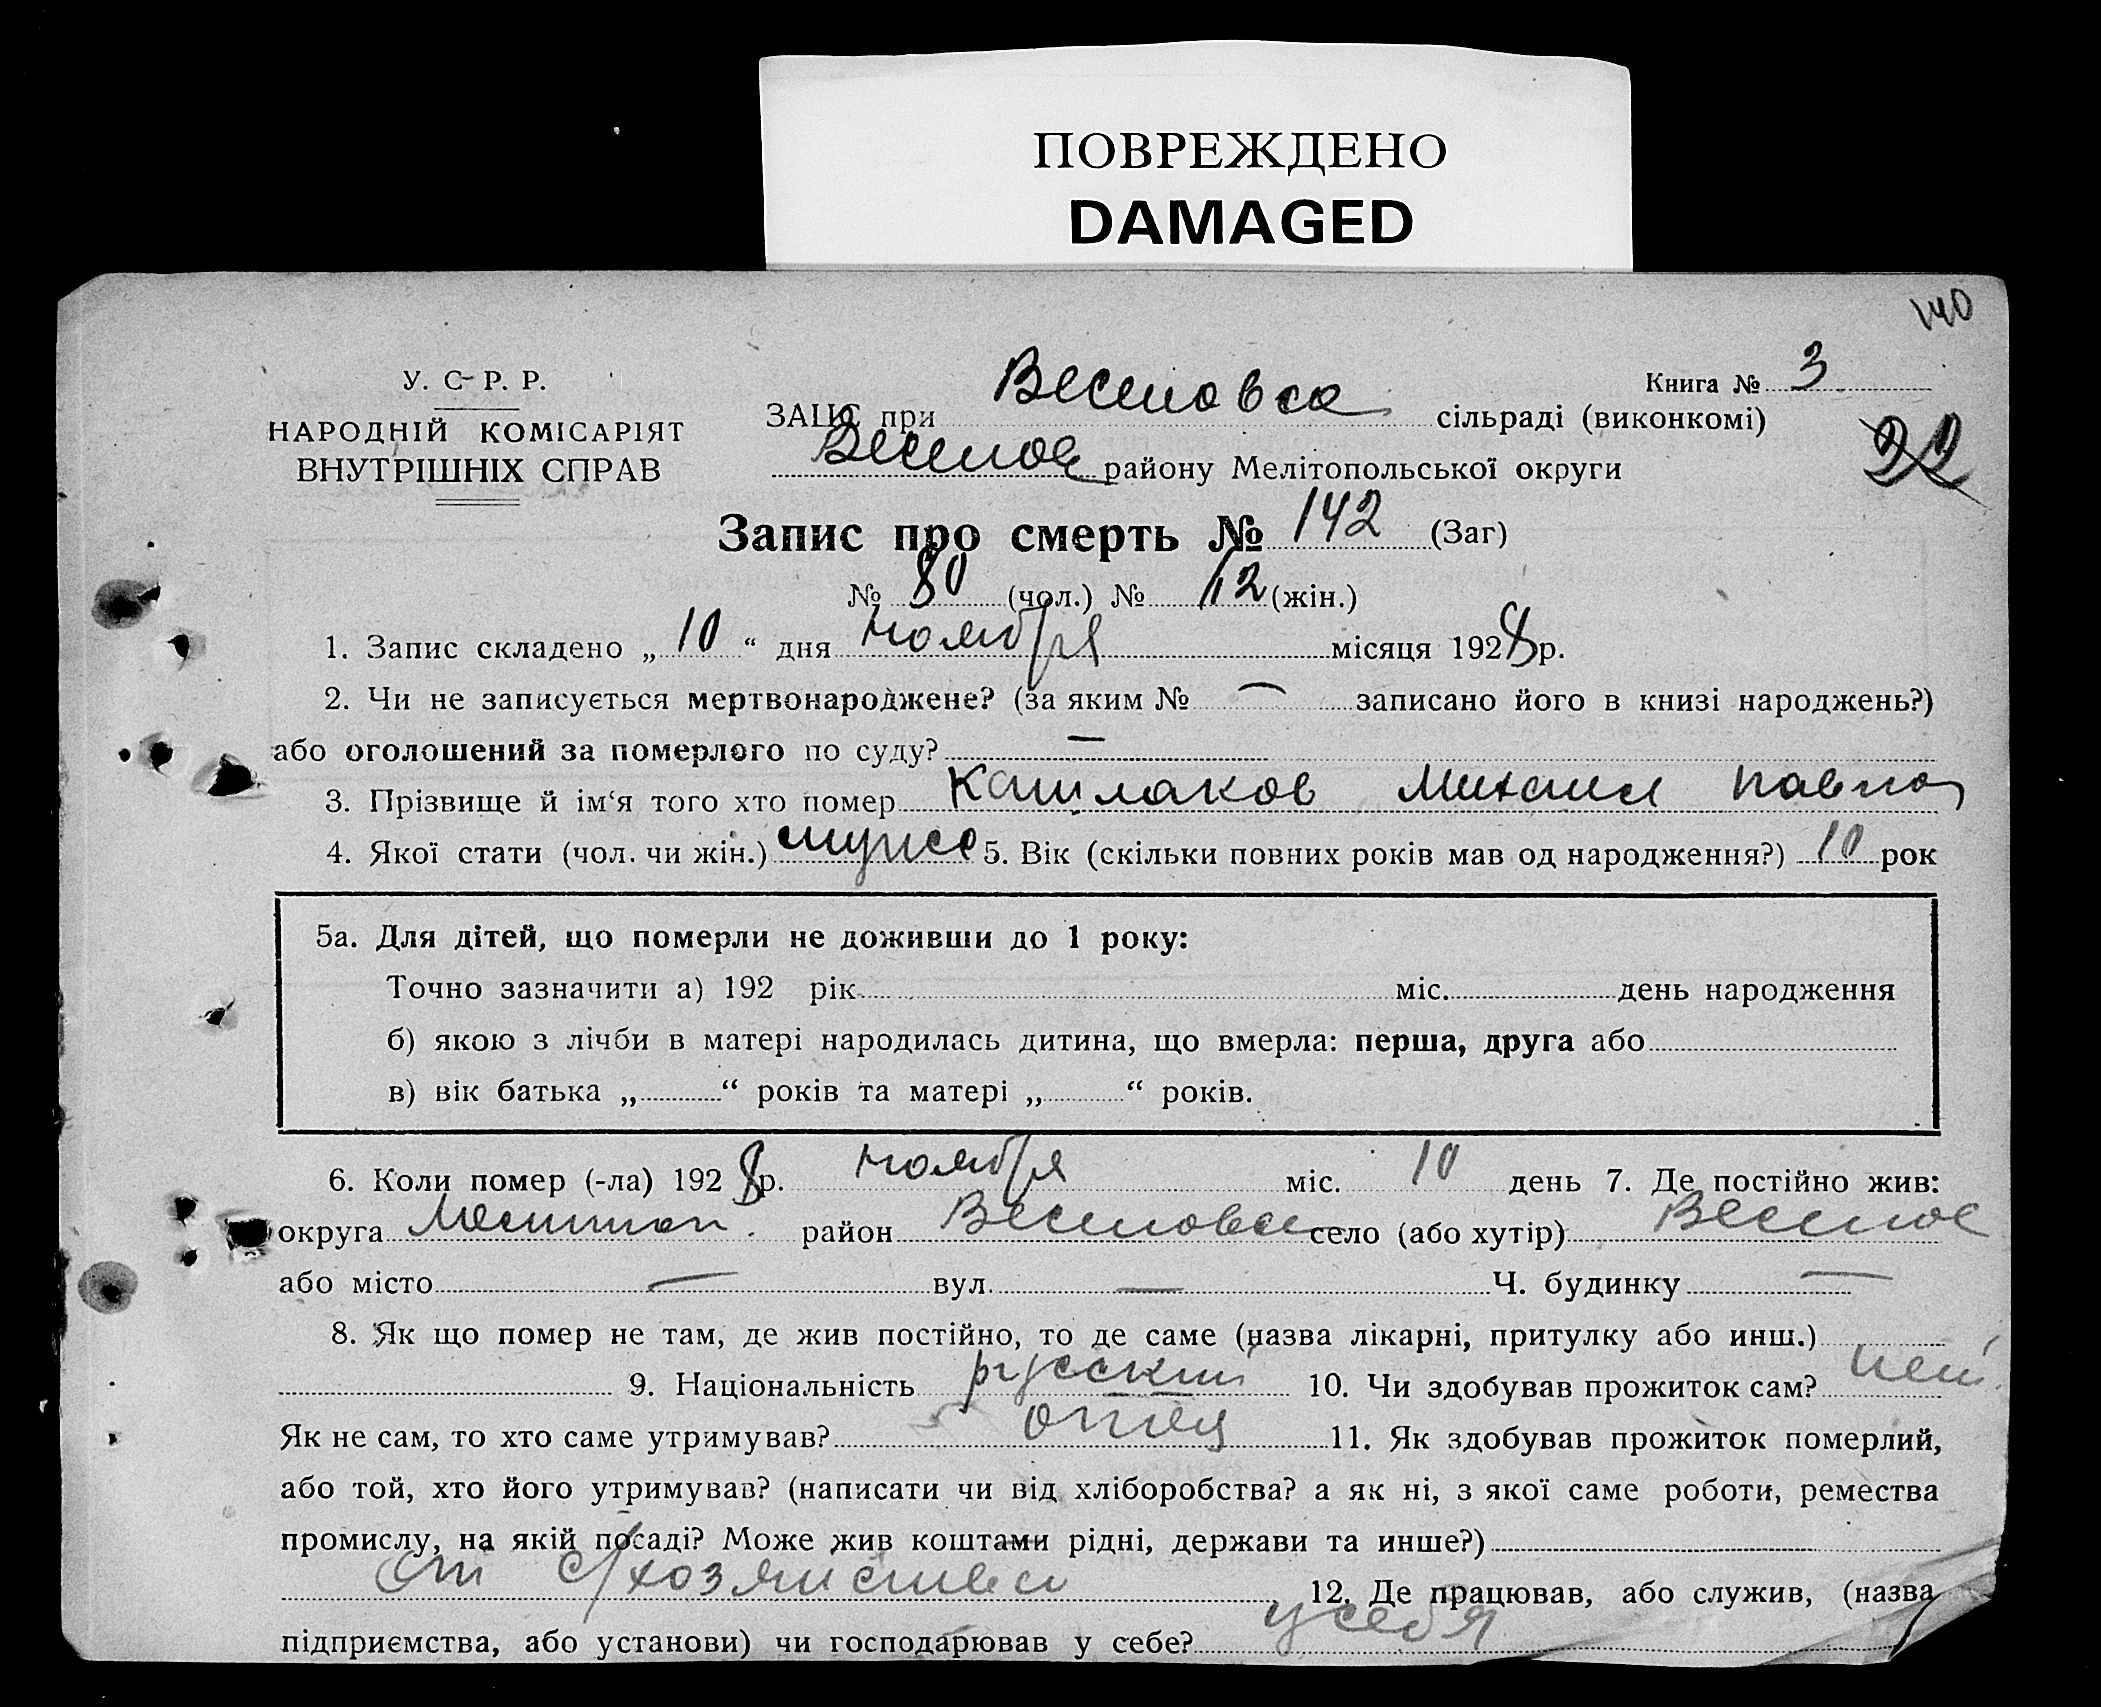 ПОВРЕЖДЕНО
DAMAGED
140
У. С. Р. Р.
НАРОДНІЙ КОМІСАРІЯТ
ВНУТРІШНІХ СПРАВ
Книга № 3
ЗАЦС при сільраді (виконкомі)
Веселое району Мелітопольської округи
22
Запис про смерть № 142 (Заг)
№ 80 (чол.) № (жін.)
1. Запис складено „ 10 “ дня ноября місяця 1928 р.
2. Чи не записується мертвонароджене? (за яким № — записано його в книзі народжень?)
або оголошений за померлого по суду? —
3. Прізвище й ім‘я того хто помер Кашлаков Михаил Павлов
4. Якої стати (чол. чи жін.) мужс 5. Вік (скільки повних років мав од народження?) 10 рок
5а. Для дітей, що померли не доживши до 1 року:
Точно зазначити а) 192 рік міс. день народження
б) якою з лічби в матері народилась дитина, що вмерла: перша, друга або
в) вік батька „ “ років та матері „ “ років.
6. Коли помер (-ла) 1928 р. ноября міс. 10 день 7. Де постійно жив:
округа Мелитоп. район село (або хутір) Веселое
або місто — вул. — Ч. будинку —
8. Як що помер не там, де жив постійно, то де саме (назва лікарні, притулку або инш.)
9. Національність русский 10. Чи здобував прожиток сам? нет
Як не сам, то хто саме утримував? отец 11. Як здобував прожиток померлий,
або той, хто його утримував? (написати чи від хліборобства? а як ні, з якої саме роботи, ремества
промислу, на якій посаді? Може жив коштами рідні, держави та инше?)
от с/хозяйства 12. Де працював, або служив, (назва
підприємства, або установи) чи господарював у себе? у себя